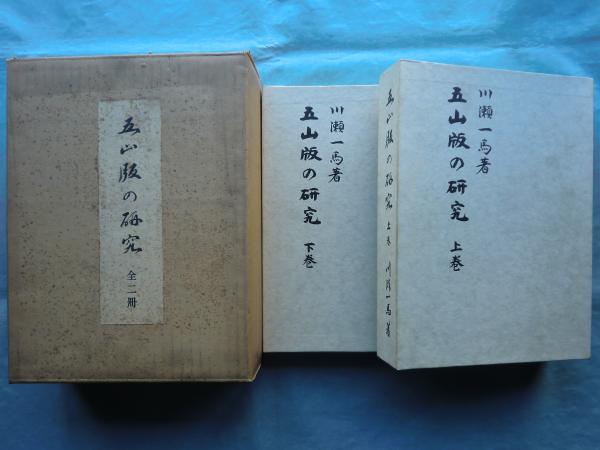 五山版の研究
全二冊
川瀬一馬著
五山版の研究
下巻
五山版の研究 上巻 川瀬一馬著
川瀬一馬著
五山版の研究
上巻